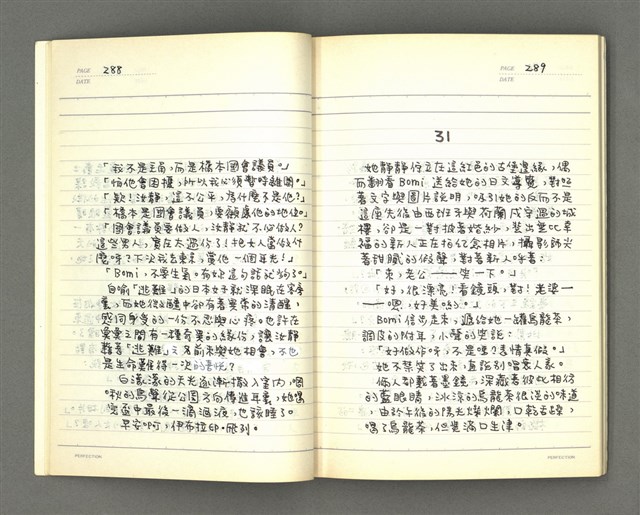 PAGE 288
DATE
「我不是主角，而是橋本國會議員。」
「怕他會困擾，所以我必須暫時離開。」
「欸！汝靜，這不公平，為什麼不是他？」
「橋本是國會議員，要顧慮他的地位。」
「國會議員要做人，汝靜就不必做人？
這些男人，實在太過份了！把女人當做什
麼呀？下次我去東京，罵他一個耳光！」
「Bomi，不要生氣，有妳這句話就夠了。」
自喻「逃難」的日本女子就深眠在客房
裏，而她從酣中卻有著異常的清醒，
感同身受的一份不忍與心疼。也許在
冥冥之間有一種奇異的緣份，讓汝靜
藉著「逃難」之名前來與她相會，不也
是生命難得一次的喜悅？
白濛濛的天光逐漸攤入室內，啁
啾的鳥聲從公園方向傳進耳裏，她喝
完盃中最後一滴酒液，也該睡了。
早安啊，伊布拉印·飛列。
PERFECTION
PAGE 289
DATE
31
她靜靜佇立在這紅色的古堡邊緣，偶
而翻看Bomi送給她的日文導覽，對照
著文字與圖片說明，吸引她的反而不是
這座先後由西班牙與荷蘭戍守過的城
樓，卻是一對披著婚紗，裝出無比幸
福的新人正在拍紀念相片，攝影師尖
著甜膩的假聲，對著新人呼著：
「來，老公——笑一下。」
「好，很漂亮！看鏡頭，對！老婆—
—嗯，好美哟。」
Bomi信步走來，遞給她一罐烏龍茶，
調皮的附耳，小聲的笑說：
「好做作呀，不是嗎？表情真假。」
她不禁笑了出來，直說別嘲案人家。
倆人都戴著墨鏡，深藏著彼此相仿
的藍眼睛，冰涼的烏龍茶很淡的味道
，由於午後的陽光燦爛，口乾舌躁，
喝了烏龍茶，但覺滿口生津。
PERFECTION